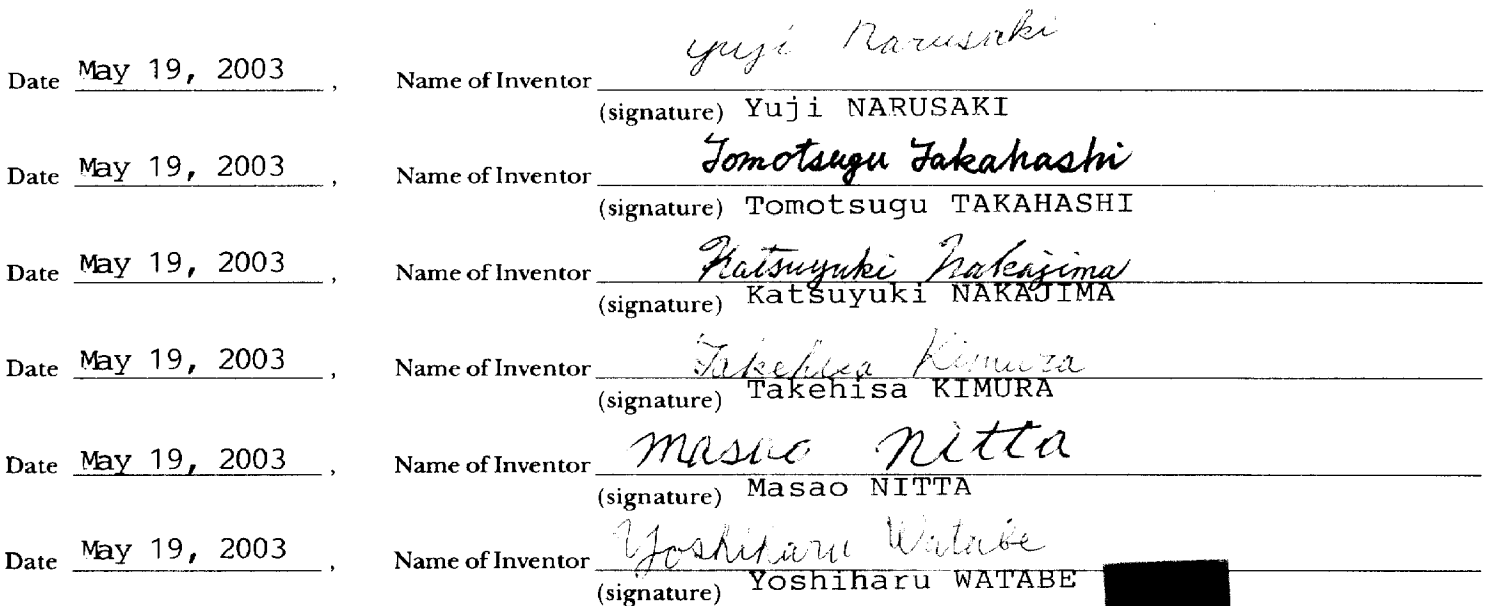 yuji Narusaki
Date May 19, 2003, Name of Inventor
(signature) Yuji NARUSAKI
Tomotsugu Takahashi
Date May 19, 2003, Name of Inventor
(signature) Tomotsugu TAKAHASHI
Date May 19, 2003, Name of Inventor Katsuyuki Nakajima
(signature) Katsuyuki NAKAJIMA
Date May 19, 2003, Name of Inventor Takehisa Kimura
(signature) Takehisa KIMURA
Date May 19, 2003, Name of Inventor Masao Nitta
(signature) Masao NITTA
Date May 19, 2003, Name of Inventor Yoshiharu Watabe
(signature) Yoshiharu WATABE